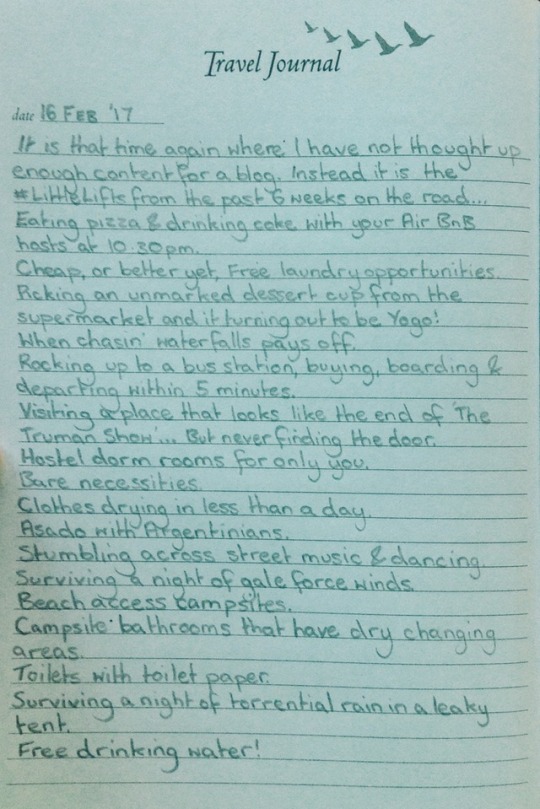 Travel Journal
date 16 FEB '17
It is that time again where I have not thought up
enough content for a blog. Instead it is the
#LittleLifts from the past 6 weeks on the road...
Eating pizza & drinking coke with your Air BnB
hosts at 10.30pm.
Cheap, or better yet, Free laundry opportunities.
Picking an unmarked dessert cup from the
supermarket and it turning out to be Yogo!
When chasin' waterfalls pays off.
Rocking up to a bus station, buying, boarding &
departing within 5 minutes.
Visiting a place that looks like the end of 'The
Truman Show'... But never finding the door.
Hostel dorm rooms for only you.
Bare necessities.
Clothes drying in less than a day.
Asado with Argentinians.
Stumbling across street music & dancing.
Surviving a night of gale force winds.
Beach access campsites.
Campsite bathrooms that have dry changing
areas.
Toilets with toilet paper.
Surviving a night of torrential rain in a leaky
tent.
Free drinking water!